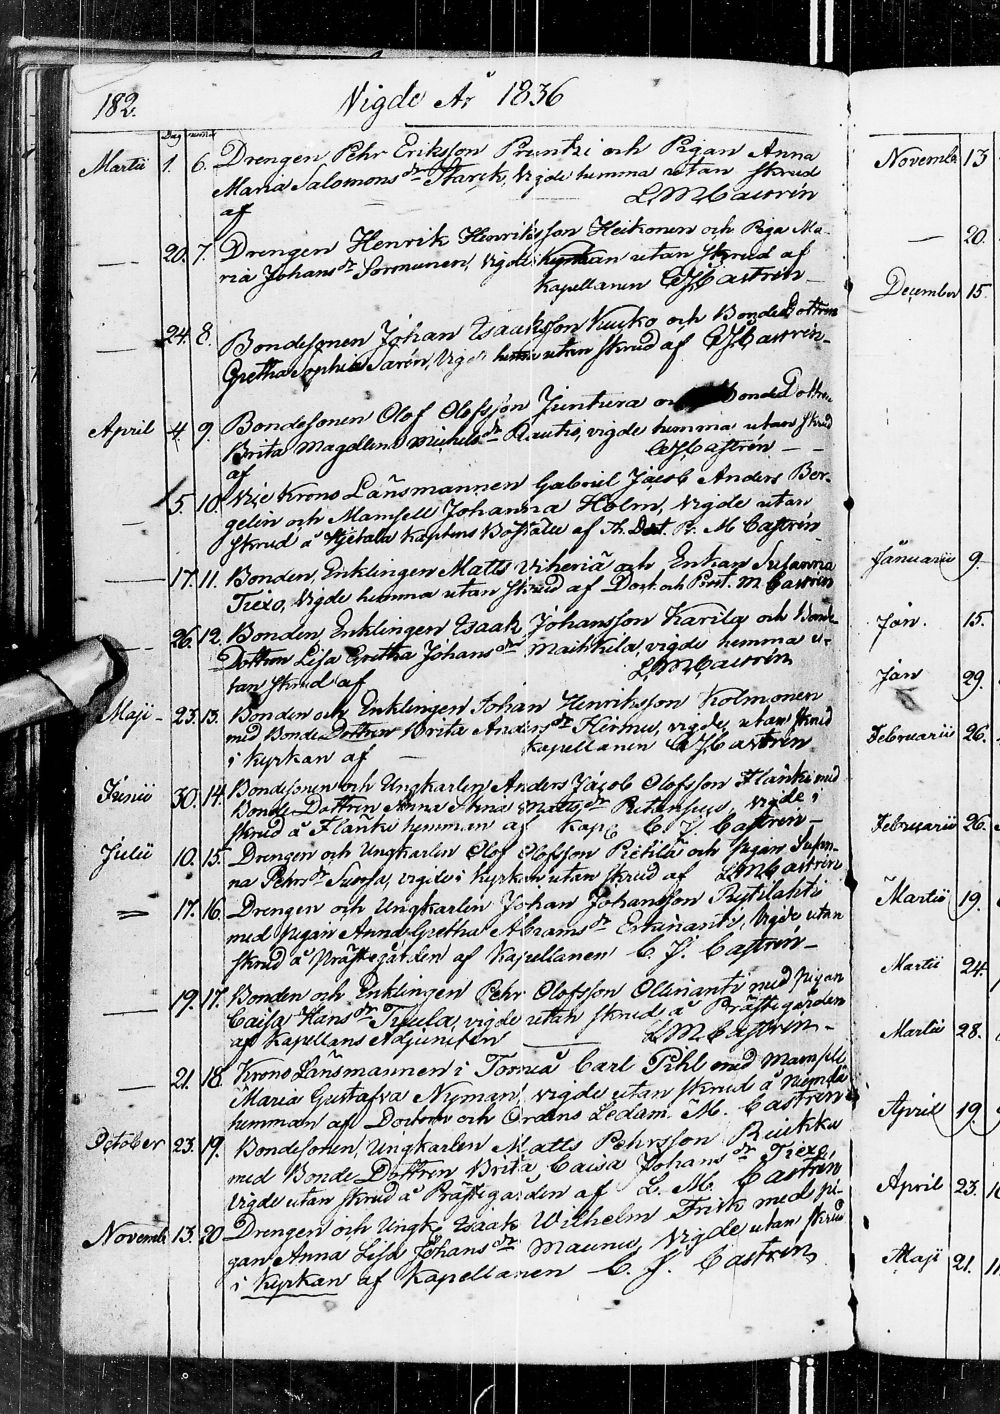 182.
Vigde År 1836
Dag
Martii 1. 6. Drengen Pehr Eriksson Pruntzi och Pigan Anna
Maria Salomons dr Starck, vigde hemma utan skrud
af L M Castrén
— 20. 7. Drengen Henrik Henriksson Heikonen och Piga Ma-
ria Johans dr Sormunen, vigde Kyrkan utan skrud af
Kapellanen C J Castrén
— 24. 8. Bondesonen Johan Isaaksson Kuuko och Bonde Dottren
Gretha Sophia Sarén, vigde hemma utan skrud af C J Castrén
April 4. 9. Bondesonen Olof Olofsson Juntura och Bonde Dottren
Brita Magdlena Michels dr Rautio, vigde hemma utan skrud
af C J Castrén
— 5. 10. Vice Krono Länsmannen Gabriel Jacob Anders Ber-
gelin och Mamsell Johanna Holm, vigde utan
skrud å Kaptens Boställe af M Castrén
— 17. 11. Bonden, Enklingen Matts Viheriä och Enkan Susanna
Träxo, vigde hemma utan skrud af Doct. och Prost. M Castrén
— 26. 12. Bonden, Enklingen Isaak Johansson Karila och Bonde
Dottren Lisa Gretha Johans dr Maikkila, vigde hemma u-
tan skrud af L M Castrén
Maji 23. 13. Bonden och Enklingen Johan Henriksson Kolmonen
med Bonde Dottren Brita Anders dr Hirmu, vigde utan skrud
i Kyrkan af Kapellanen C J Castrén
Junii 30. 14. Bondesonen och Ungkarlen Anders Jacob Olofsson Flänki med
Bonde Dottren Anna Stina Matts dr vigde i
skrud å Flänki hemman af Kap. C. J. Castrén
Julii 10. 15. Drengen och Ungkarlen Olof Olofsson Pietilä och pigan Susan-
na Pehrs dr Suopa, vigde i Kyrkan utan skrud af L M Castrén
17. 16. Drengen och Ungkarlen Johan Johansson Rytilahti
med pigan Anna Gretha Abrams dr Erkinantti, vigde utan
skrud å Prästegården af Kapellanen C. J. Castrén
— 19. 17. Bonden och Enklingen Pehr Olofsson Ollinantti med pigan
Caisa Hans dr vigde utan skrud å Prästegården
af Kapellans Adjuncten L M Castrén
— 21. 18. Krono Länsmannen i Torneå Carl Pihl med Mamsell
Maria Gustafva Nyman, vigde utan skrud å
hemman af Doctorn och Ordens Ledam. M. Castrén
October 23. 19. Bondesonen, Ungkarlen Matts Pehrsson Ruikka
med Bonde Dottren Brita Caisa Johans dr Träxo,
vigde utan skrud å Prästegården af L. M. Castrén
Novemb. 13. 20. Drengen och Ungk. Isaak Wilhelm Frisk med pi-
gan Anna Lisa Johans dr Maunu, vigde utan skrud
i Kyrkan af Kapellanen C. J. Castrén
Novemb. 13
— 20.
December 15.
Januarii 9
Jan. 15.
Jan 29.
Februarii 26.
Februarii 26.
Martii 19.
Martii 24.
Martii 28.
April 19.
April 23.
Maji 21.